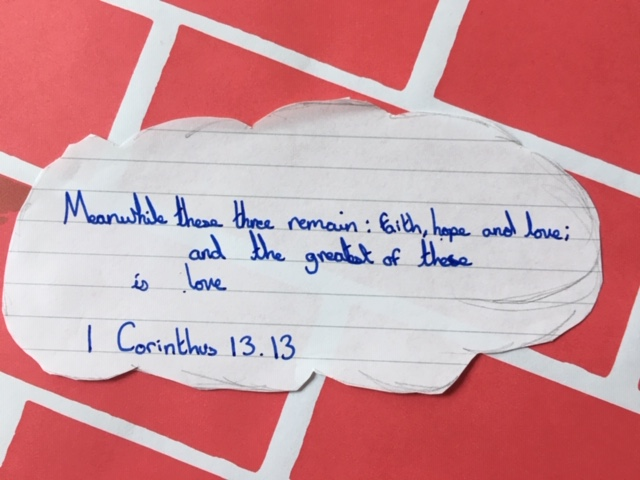 Meanwhile these three remain: faith, hope and love;
and the greatest of these
is love
1 Corinthus 13.13